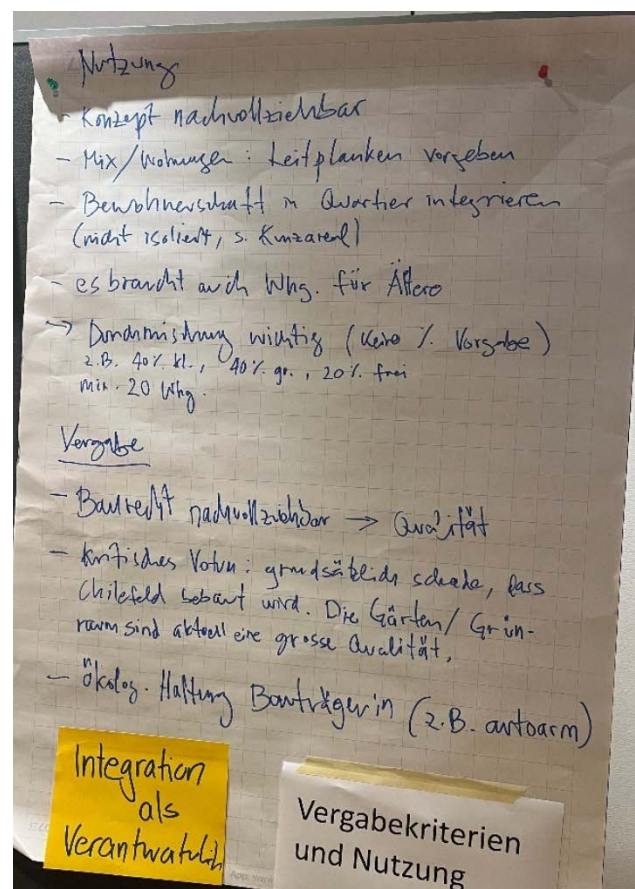 Nutzung
- Konzept nachvollziehbar
- Mix/Wohnungen : Leitplanken vorgeben
- Bewohnerschaft in Quartier integrieren
(nicht isoliert, s. Kunzareal)
- es braucht auch Whg. für Ältere
→ Durchmischung wichtig (keine % Vorgabe)
z.B. 40% kl., 40% gr., 20% frei
min. 20 Whg.
Vergabe
- Baurecht nachvollziehbar → Qualität
- Kritisches Votum : grundsätzlich schade, dass
Chilefeld bebaut wird. Die Gärten/Grün-
raum sind aktuell eine grosse Qualität.
- Ökolog. Haltung Bauträgerin (z.B. autoarm)
Integration
als
Vergabekriterien
und Nutzung